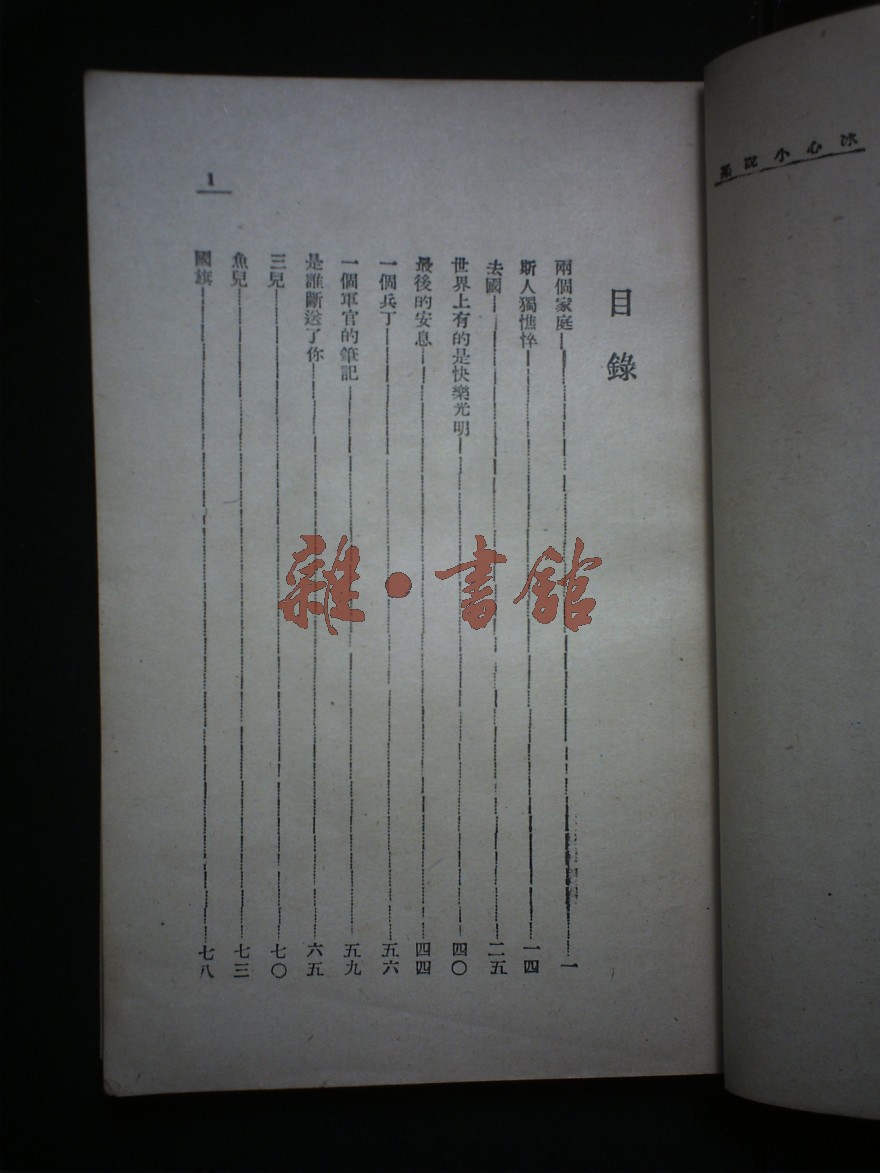 冰心小說集
目錄
兩個家庭 一
斯人獨憔悴 一四
去國 二五
世界上有的是快樂光明 四〇
最後的安息 四四
一個兵丁 五六
一個軍官的筆記 五九
是誰斷送了你 六五
三兒 七〇
魚兒 七三
國旗 七八
1
雜·書館